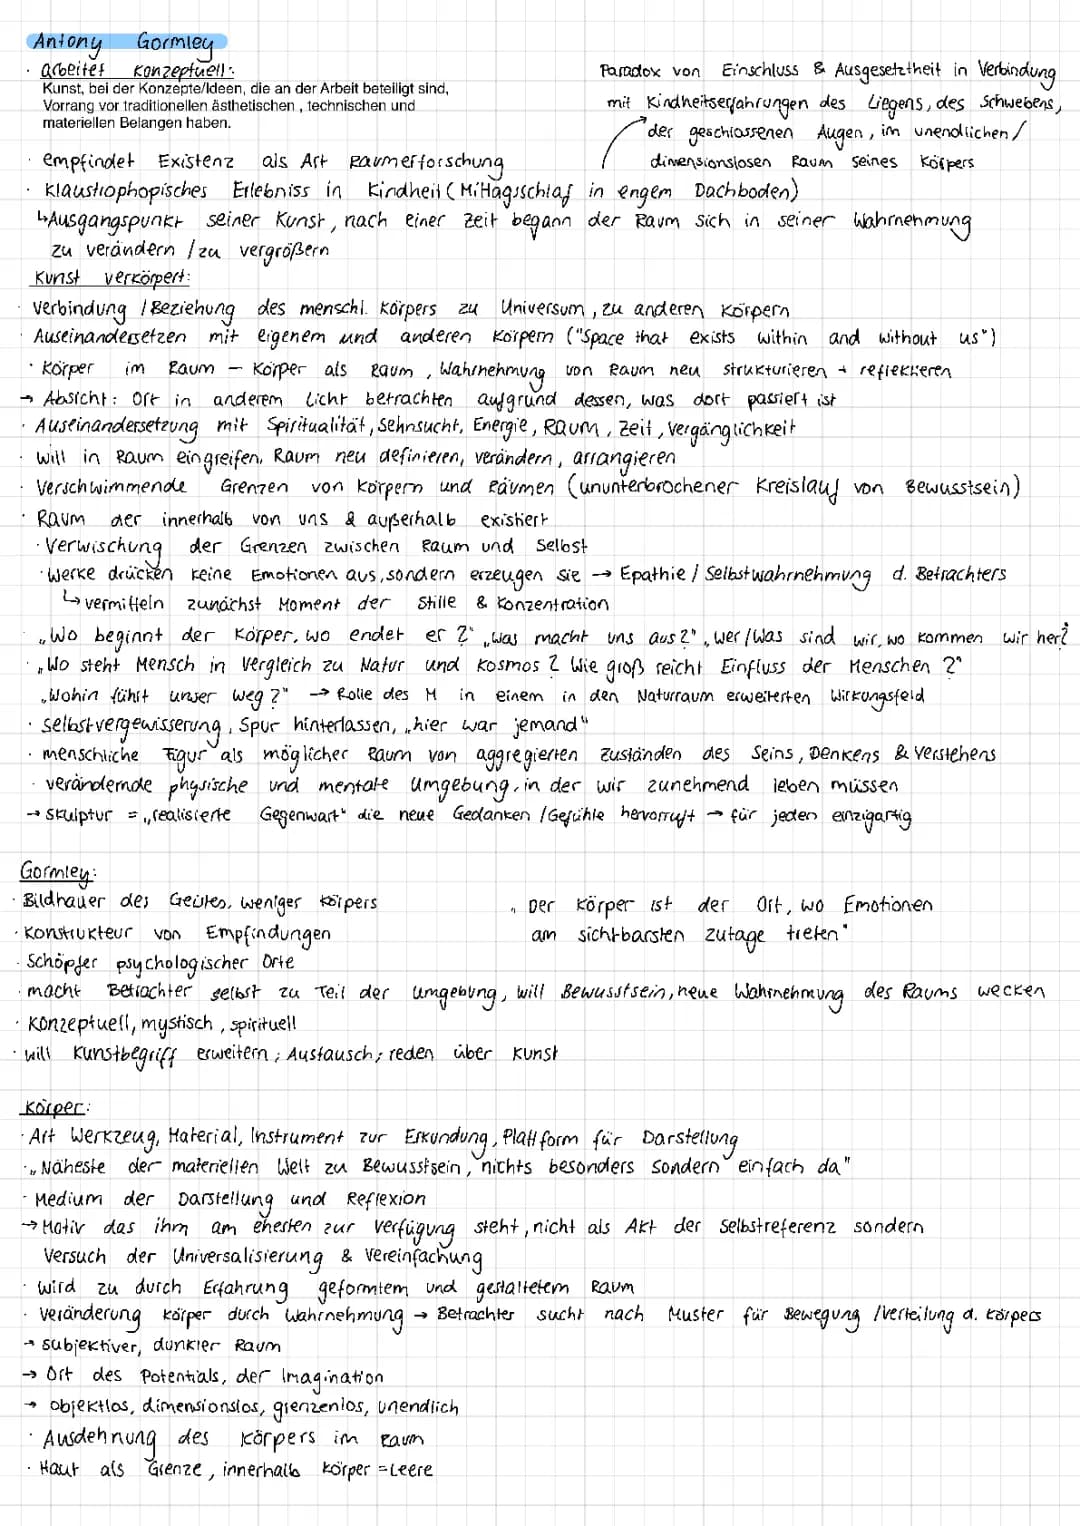 Antony Gormley
· arbeitet konzeptuell:
Kunst, bei der Konzepte/Ideen, die an der Arbeit beteiligt sind,
Vorrang vor traditionellen ästhetischen , technischen und
materiellen Belangen haben.
Paradox von Einschluss & Ausgesetztheit in Verbindung
mit Kindheitserfahrungen des Liegens, des Schwebens,
der geschlossenen Augen, im unendlichen/
dimensionslosen Raum seines Körpers
· empfindet Existenz als Art Raumerforschung
· Klaustrophopisches Erlebniss in Kindheit (Mittagsschlaf in engem Dachboden)
↳Ausgangspunkt seiner Kunst, nach einer Zeit begann der Raum sich in seiner Wahrnehmung
zu verändern / zu vergrößern
Kunst verkörpert:
· Verbindung / Beziehung des menschl. Körpers zu Universum, zu anderen Körpern
· Auseinandersetzen mit eigenem und anderen Körpern ("Space that exists within and without us")
· Körper im Raum – Körper als Raum, Wahrnehmung von Raum neu strukturieren + reflektieren
→ Absicht: Ort in anderem Licht betrachten aufgrund dessen, was dort passiert ist
· Auseinandersetzung mit Spiritualität, Sehnsucht, Energie, Raum, Zeit, Vergänglichkeit
· will in Raum eingreifen, Raum neu definieren, verändern, arrangieren
· Verschwimmende Grenzen von Körpern und Räumen (ununterbrochener Kreislauf von Bewusstsein)
· Raum der innerhalb von uns & außerhalb existiert
· Verwischung der Grenzen zwischen Raum und Selbst
· Werke drücken keine Emotionen aus, sondern erzeugen sie → Epathie / Selbstwahrnehmung d. Betrachters
↳ vermitteln zunächst Moment der Stille & Konzentration
· „Wo beginnt der Körper, wo endet er ?" „was macht uns aus?", wer/was sind wir, wo kommen wir her?
· „Wo steht Mensch in Vergleich zu Natur und Kosmos ? Wie groß reicht Einfluss der Menschen ?"
„Wohin führt unser Weg ?" → Rolle des M in einem in den Naturraum erweiterten Wirkungsfeld
· Selbstvergewisserung, Spur hinterlassen, „hier war jemand"
· menschliche Figur als möglicher Raum von aggregierten Zuständen des Seins, Denkens & Verstehens
· verändernde physische und mentale Umgebung, in der wir zunehmend leben müssen
→ Skulptur = „realisierte Gegenwart" die neue Gedanken / Gefühle hervorruft → für jeden einzigartig
Gormley:
· Bildhauer des Geistes, weniger Körpers
· Konstrukteur von Empfindungen
„ Der Körper ist der Ort, wo Emotionen
am sichtbarsten zutage treten"
· Schöpfer psychologischer Orte
· macht Betrachter selbst zu Teil der Umgebung, will Bewusstsein, neue Wahrnehmung des Raums wecken
· Konzeptuell, mystisch, spirituell
· will Kunstbegriff erweitern; Austausch; reden über Kunst
Körper:
· Art Werkzeug, Material, Instrument zur Erkundung, Plattform für Darstellung
· „Näheste der materiellen Welt zu Bewusstsein, nichts besonders sondern einfach da"
· Medium der Darstellung und Reflexion
→ Motiv das ihm am ehesten zur Verfügung steht, nicht als Akt der Selbstreferenz sondern
Versuch der Universalisierung & Vereinfachung
· wird zu durch Erfahrung geformtem und gestaltetem Raum
· Veränderung Körper durch Wahrnehmung → Betrachter sucht nach Muster für Bewegung /Verteilung d. Körpers
→ subjektiver, dunkler Raum
→ Ort des Potentials, der Imagination
→ objektlos, dimensionslos, grenzenlos, unendlich
· Ausdehnung des Körpers im Raum
· Haut als Grenze, innerhalb Körper = Leere